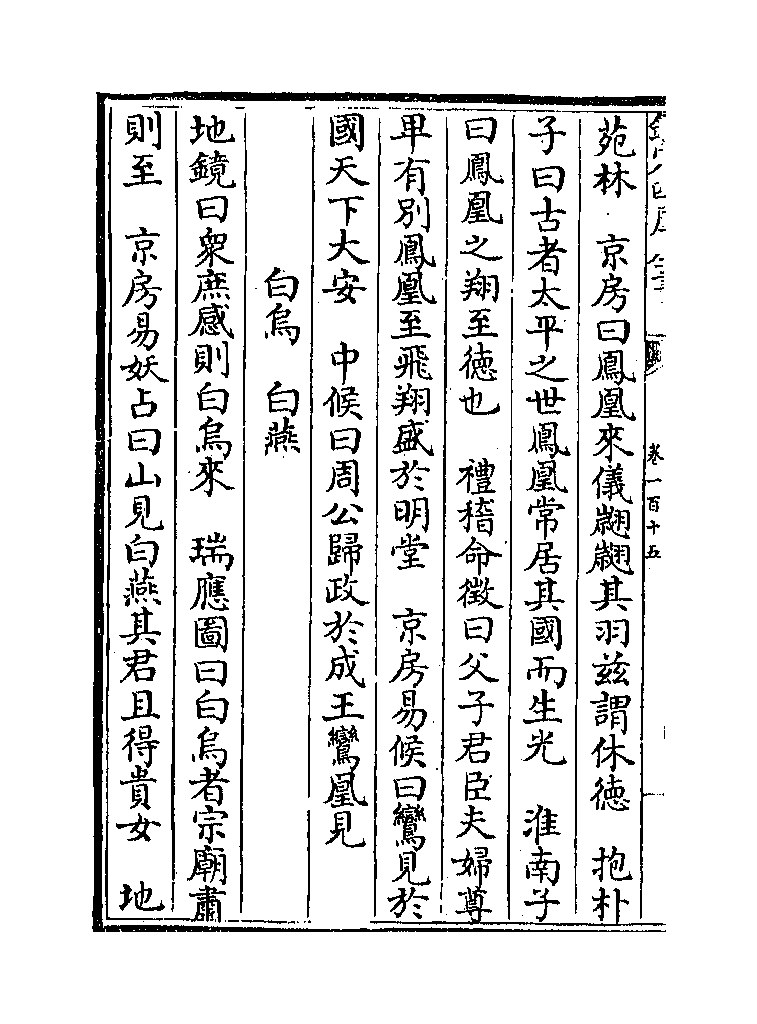 卷一百十五
苑林　京房曰鳳凰來儀翽翽其羽兹謂休徳　抱朴
子曰古者太平之世鳳凰常居其國而生光　淮南子
曰鳳凰之翔至徳也　禮稽命徴曰父子君臣夫婦尊
卑有别鳳凰至飛翔盛於明堂　京房易候曰鸞見於
國天下大安　中候曰周公歸政於成王鸞凰見
白烏　白燕
地鏡曰衆庶感則白烏來　瑞應圖曰白烏者宗廟肅
則至　京房易妖占曰山見白燕其君且得貴女　地